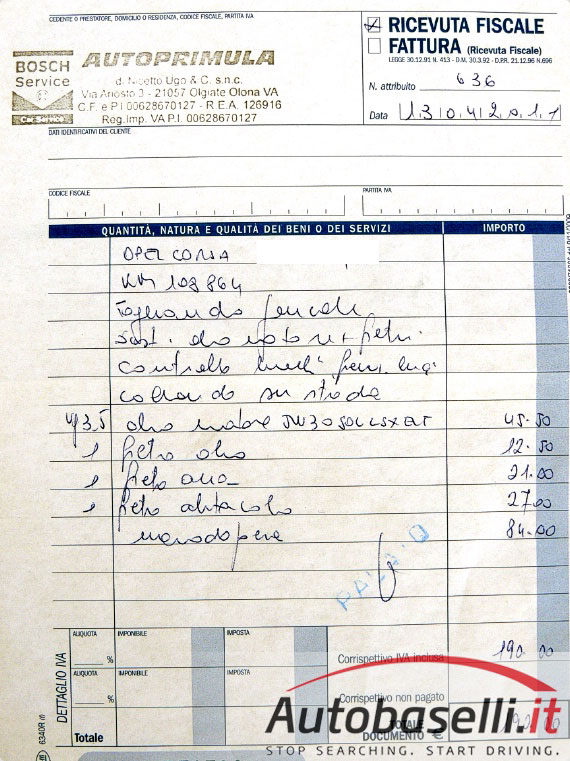 CEDENTE O PRESTATORE, DOMICILIO O RESIDENZA, CODICE FISCALE, PARTITA IVA
BOSCH
Service
Car Service
AUTOPRIMULA
di Nicetto Ugo & C. s.n.c.
Via Ariosto 3 - 21057 Olgiate Olona VA
C.F. e P.I 00628670127 - R.E.A. 126916
Reg.Imp. VA P.I. 00628670127
RICEVUTA FISCALE
FATTURA (Ricevuta Fiscale)
LEGGE 30.12.91 N. 413 - D.M. 30.3.92 - D.P.R. 21.12.96 N.696
N. attribuito 636
Data 13 04 2011
DATI IDENTIFICATIVI DEL CLIENTE
CODICE FISCALE
PARTITA IVA
QUANTITÀ, NATURA E QUALITÀ DEI BENI O DEI SERVIZI IMPORTO
OPEL CORSA
KM 108864
Tagliando
Sost. olio motore + filtri
controllo livelli freni luci
collaudo su strada
3.5 olio motore 5W30 45.50
1 filtro olio 12.50
1 filtro aria 21.00
1 filtro abitacolo 27.00
manodopera 84.00
PAGATO
DETTAGLIO IVA
ALIQUOTA IMPONIBILE IMPOSTA
%
Corrispettivo IVA inclusa 190.00
ALIQUOTA IMPONIBILE IMPOSTA
%
Corrispettivo non pagato
Totale
TOTALE DOCUMENTO € 190.00
6340R
Autobaselli.it
STOP SEARCHING. START DRIVING.